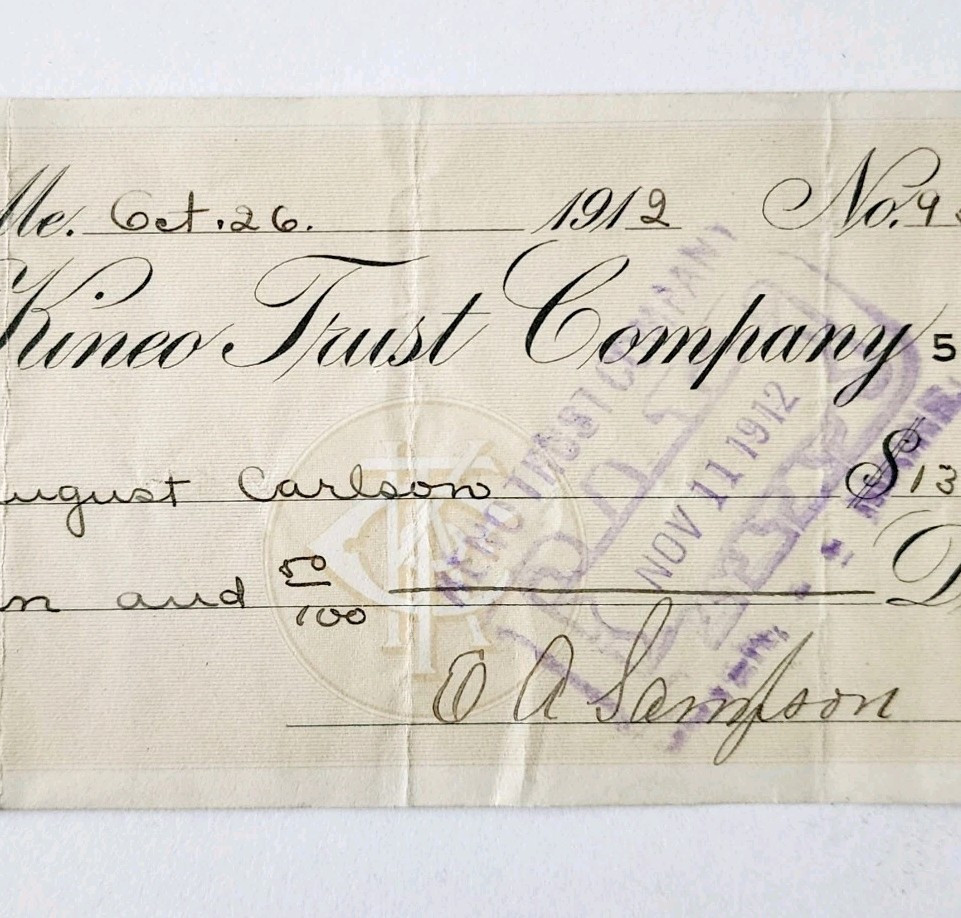 Me. Oct. 26. 1912 No. 9
Kineo Trust Company 5
ugust Carlson $13
n and 50/100 D
O A Sampson
KINEO TRUST COMPANY
PAID
NOV 11 1912